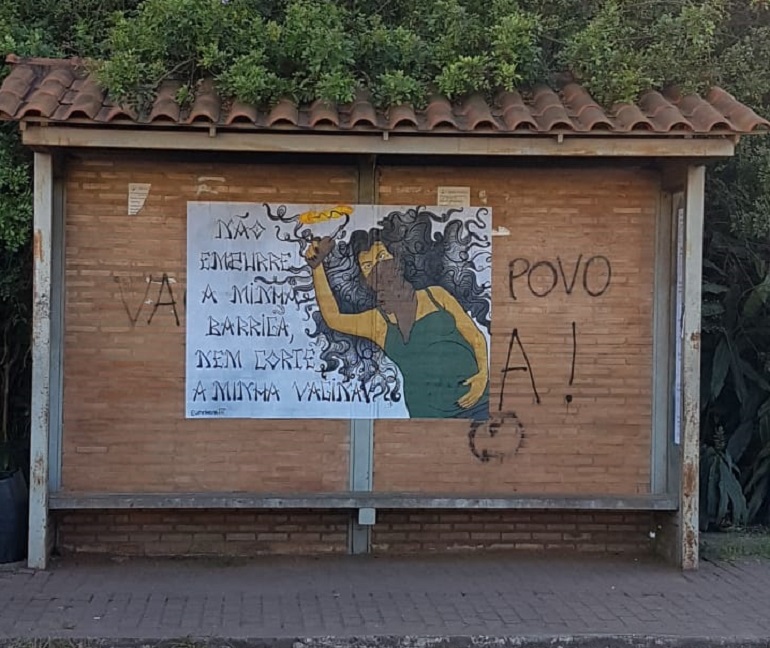 NÃO
EMPURRE
A MINHA
BARRIGA,
NEM CORTE
A MINHA VAGINA
VA
POVO
A!